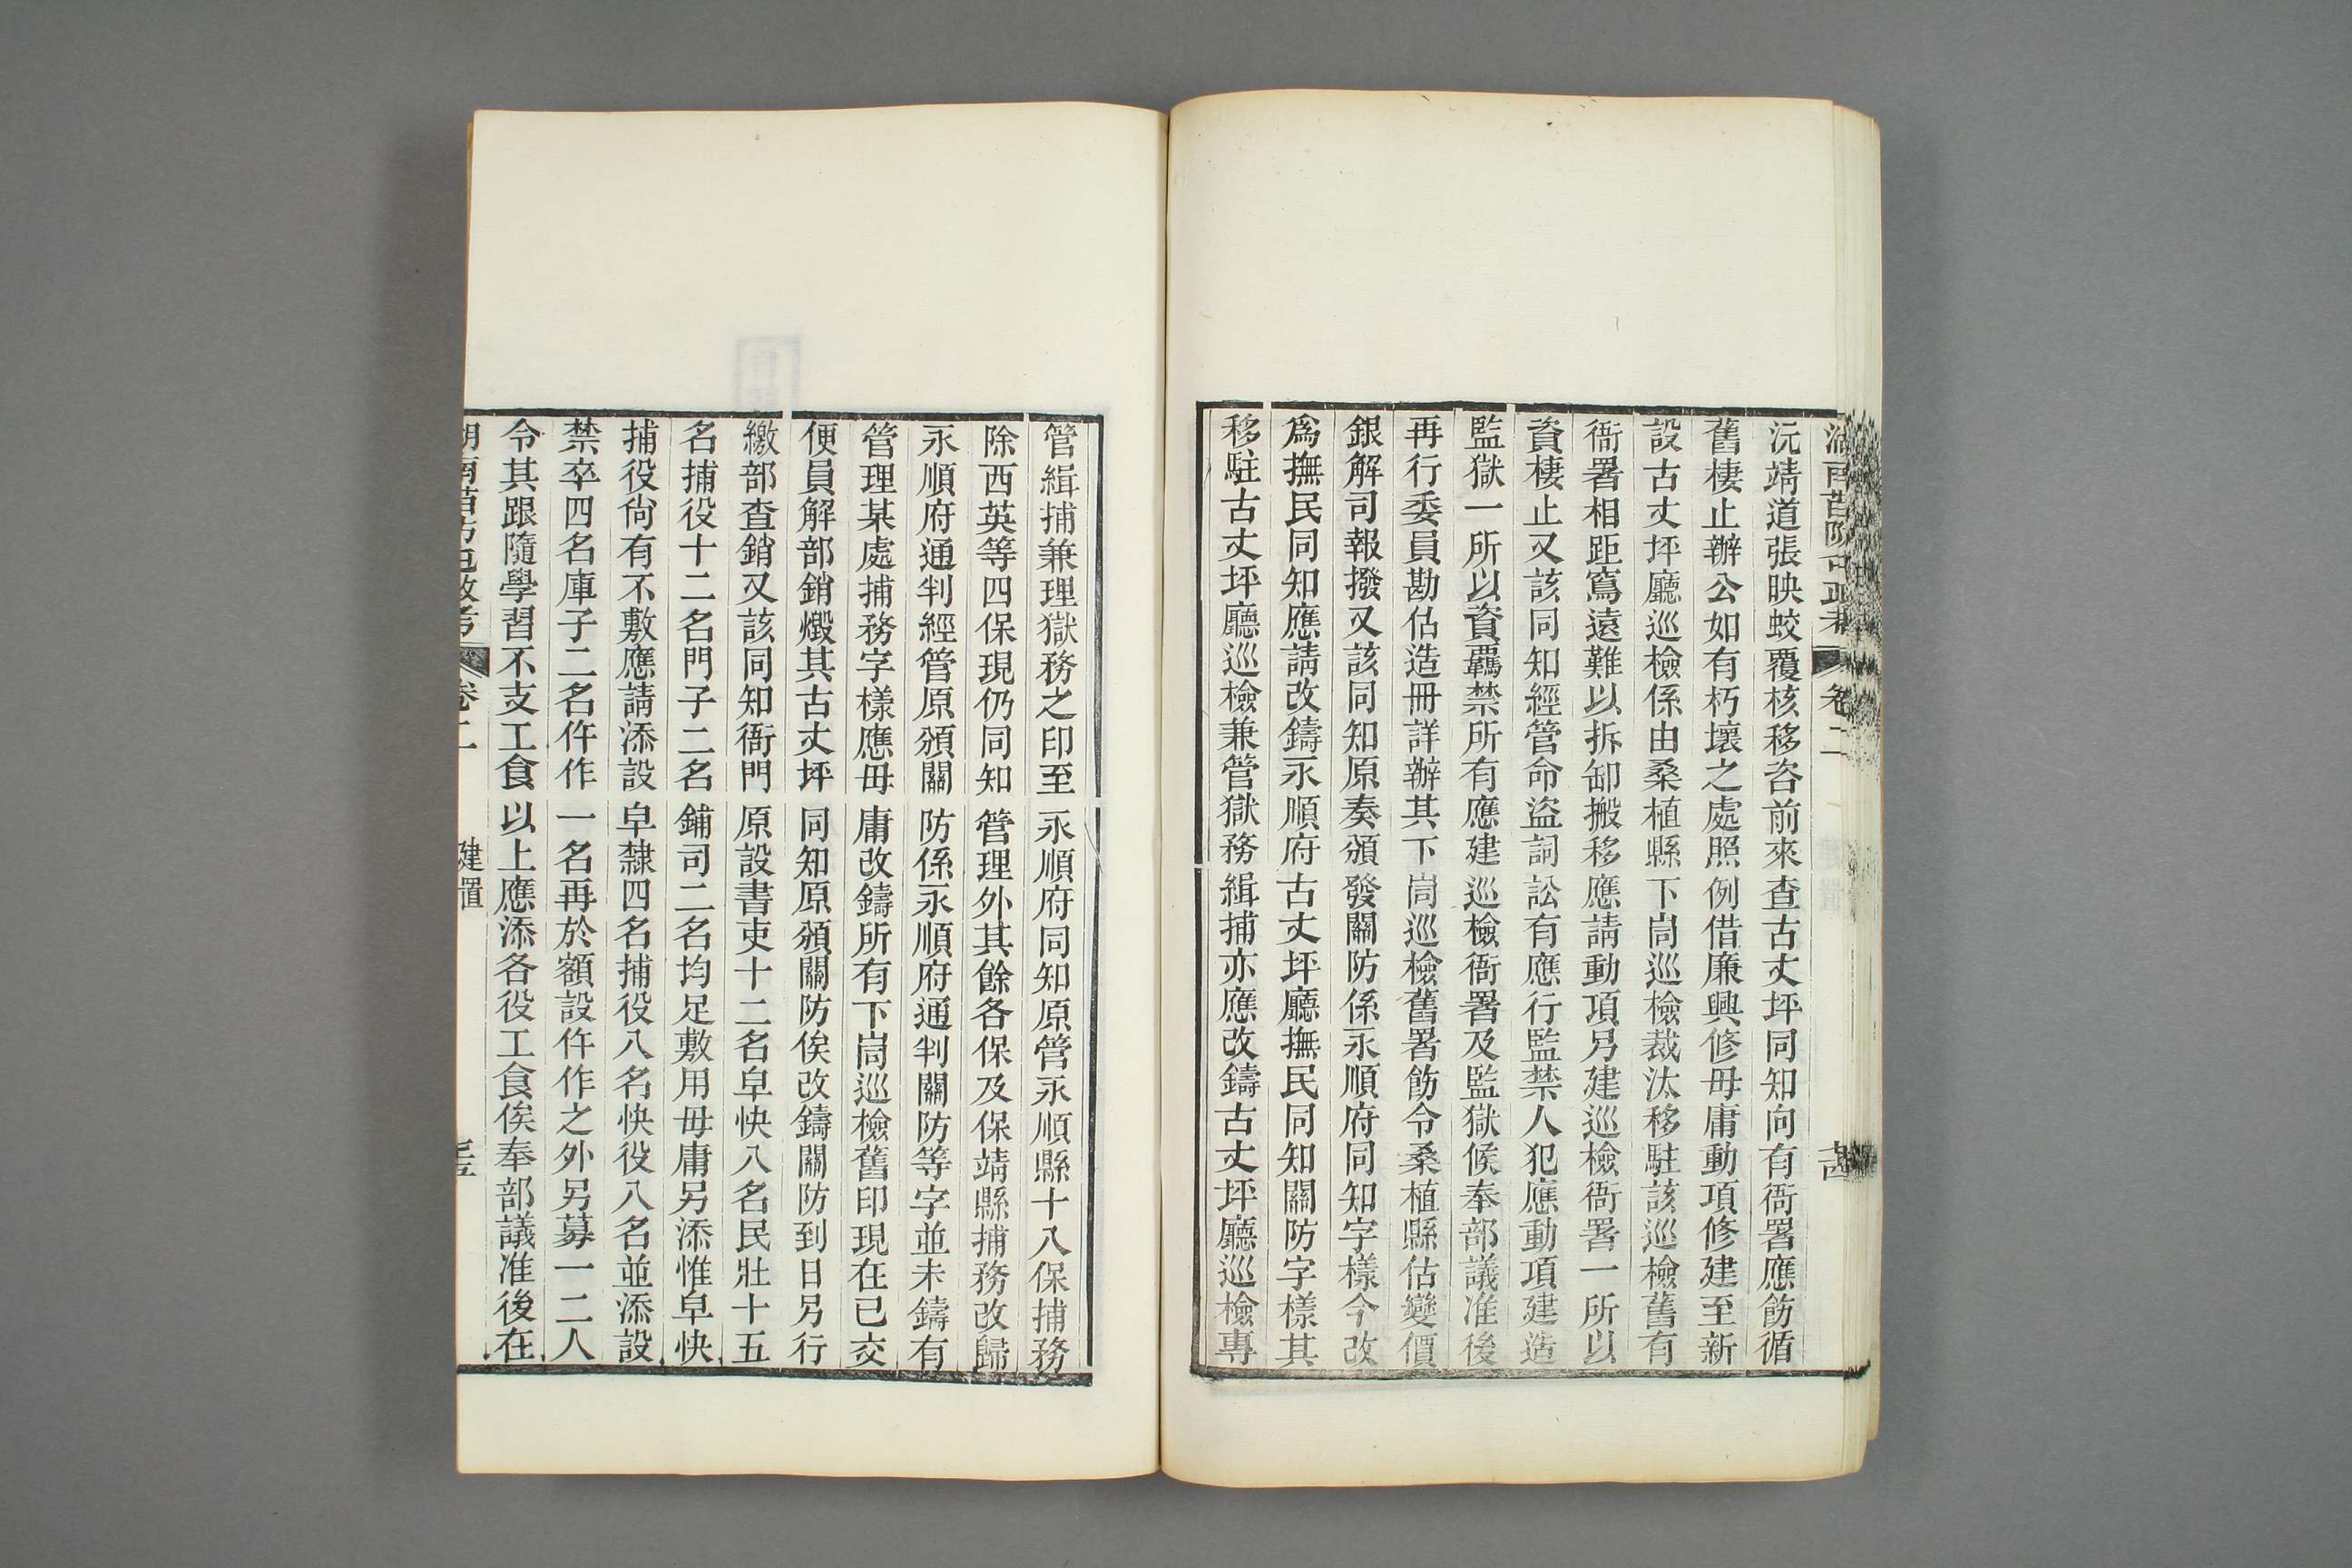 沅靖道張映蛟覆核移咨前來查古丈坪同知向有衙署應飭循
舊棲止辦公如有朽壞之處照例借廉興修毋庸動項修建至新
設古丈坪廳巡檢係由桑植縣下峝巡檢裁汰移駐該巡檢舊有
衙署相距寫遠難以拆卸搬移應請動項另建巡檢衙署一所以
資棲止又該同知經管命盜詞訟有應行監禁人犯應動項建造
監獄一所以資羈禁所有應建巡檢衙署及監獄候奉部議准後
再行委員勘估造冊詳辦其下峝巡檢舊署飭令桑植縣估變價
銀解司報撥又該同知原奏頒發關防係永順府同知字樣今改
爲撫民同知應請改鑄永順府古丈坪廳撫民同知關防字樣其
移駐古丈坪廳巡檢兼管獄務緝捕亦應改鑄古丈坪廳巡檢專
管緝捕兼理獄務之印至永順府同知原管永順縣十八保捕務
除西英等四保現仍同知管理外其餘各保及保靖縣捕務改歸
永順府通判經管原頒關防係永順府通判關防等字並未鑄有
管理某處捕務字樣應毋庸改鑄所有下峝巡檢舊印現在已交
便員解部銷燬其古丈坪同知原頒關防俟改鑄關防到日另行
繳部查銷又該同知衙門原設書吏十二名皁快八名民壯十五
名捕役十二名門子二名鋪司二名均足敷用毋庸另添惟皁快
捕役尙有不敷應請添設皁隸四名捕役八名快役八名並添設
禁卒四名庫子二名仵作一名再於額設仵作之外另募一二人
令其跟隨學習不支工食以上應添各役工食俟奉部議准後在
湖南苗防屯政考 卷二 建置